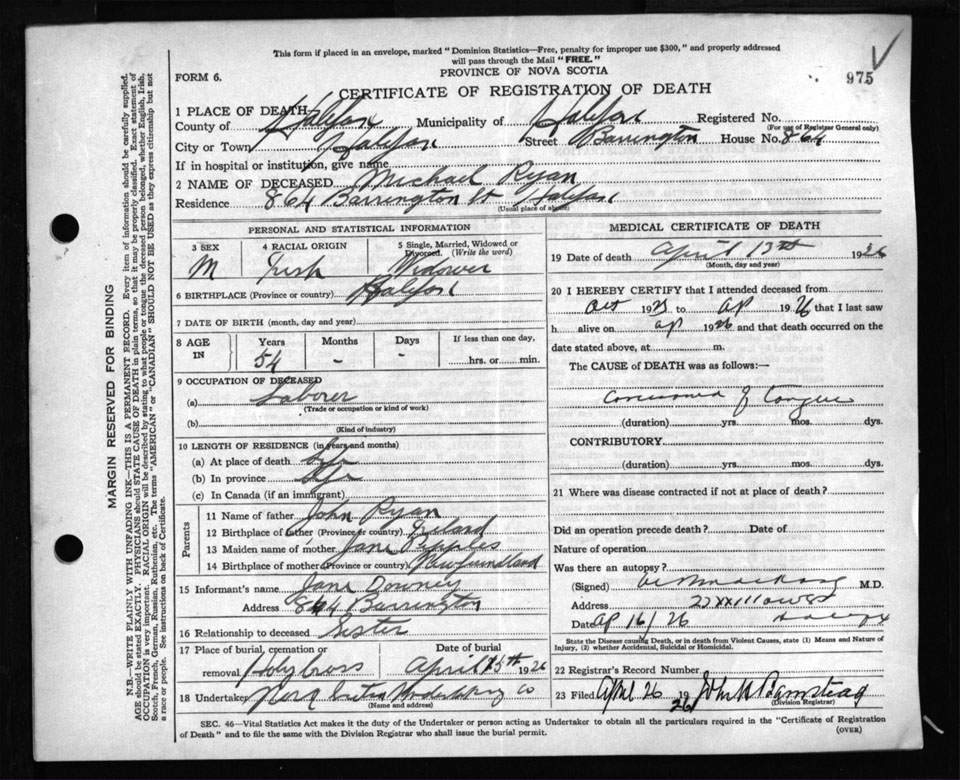 This form if placed in an envelope, marked "Dominion Statistics—Free, penalty for improper use $300," and properly addressed
will pass through the Mail "FREE."
PROVINCE OF NOVA SCOTIA
FORM 6.
975
CERTIFICATE OF REGISTRATION OF DEATH
1 PLACE OF DEATH
County of Halifax Municipality of Halifax Registered No.
(For use of Registrar General only)
City or Town Halifax Street Barrington House No. 864
If in hospital or institution, give name
2 NAME OF DECEASED Michael Ryan
Residence 864 Barrington St Halifax
(Usual place of abode)
PERSONAL AND STATISTICAL INFORMATION
3 SEX M
4 RACIAL ORIGIN Irish
5 Single, Married, Widowed or Divorced. (Write the word) Widower
6 BIRTHPLACE (Province or country) Halifax
7 DATE OF BIRTH (month, day and year)
8 AGE IN Years 54 Months - Days - If less than one day, hrs. or min.
9 OCCUPATION OF DECEASED
(a) Laborer
(Trade or occupation or kind of work)
(b)
(Kind of industry)
10 LENGTH OF RESIDENCE (in years and months)
(a) At place of death Life
(b) In province Life
(c) In Canada (if an immigrant)
Parents
11 Name of father John Ryan
12 Birthplace of father (Province or country) Ireland
13 Maiden name of mother Jane
14 Birthplace of mother (Province or country) Newfoundland
15 Informant's name Jane Downey
Address 844 Barrington
16 Relationship to deceased Sister
17 Place of burial, cremation or removal Holy Cross Date of burial April 15th 1926
18 Undertaker Nova Undertaking Co
(Name and address)
MEDICAL CERTIFICATE OF DEATH
19 Date of death April 13th 1926
(Month, day and year)
20 I HEREBY CERTIFY that I attended deceased from
Oct 1925 to ap 1926 that I last saw
h alive on ap 1926 and that death occurred on the
date stated above, at m.
The CAUSE OF DEATH was as follows:—
of Tongue
(duration) yrs. mos. dys.
CONTRIBUTORY
(duration) yrs. mos. dys.
21 Where was disease contracted if not at place of death?
Did an operation precede death? Date of
Nature of operation
Was there an autopsy?
(Signed) M.D.
Address
Date ap 16/26
State the Disease causing Death, or in death from Violent Causes, state (1) Means and Nature of
Injury, (2) whether Accidental, Suicidal or Homicidal.
22 Registrar's Record Number
23 Filed April 26 1926 John
(Division Registrar)
SEC. 46—Vital Statistics Act makes it the duty of the Undertaker or person acting as Undertaker to obtain all the particulars required in the "Certificate of Registration
of Death" and to file the same with the Division Registrar who shall issue the burial permit.
(OVER)
MARGIN RESERVED FOR BINDING
N.B.—WRITE PLAINLY WITH UNFADING INK—THIS IS A PERMANENT RECORD. Every item of information should be carefully supplied.
AGE should be stated EXACTLY. PHYSICIANS should STATE CAUSE OF DEATH in plain terms, so that it may be properly classified. Exact statement of
OCCUPATION is very important. RACIAL ORIGIN will be described by stating to what people or tongue the deceased person belonged, whether English, Irish,
Scotch, French, German, Russian, Ruthenian, etc. The terms "AMERICAN" or "CANADIAN" SHOULD NOT BE USED as they express citizenship but not
a race or people. See instructions on back of Certificate.